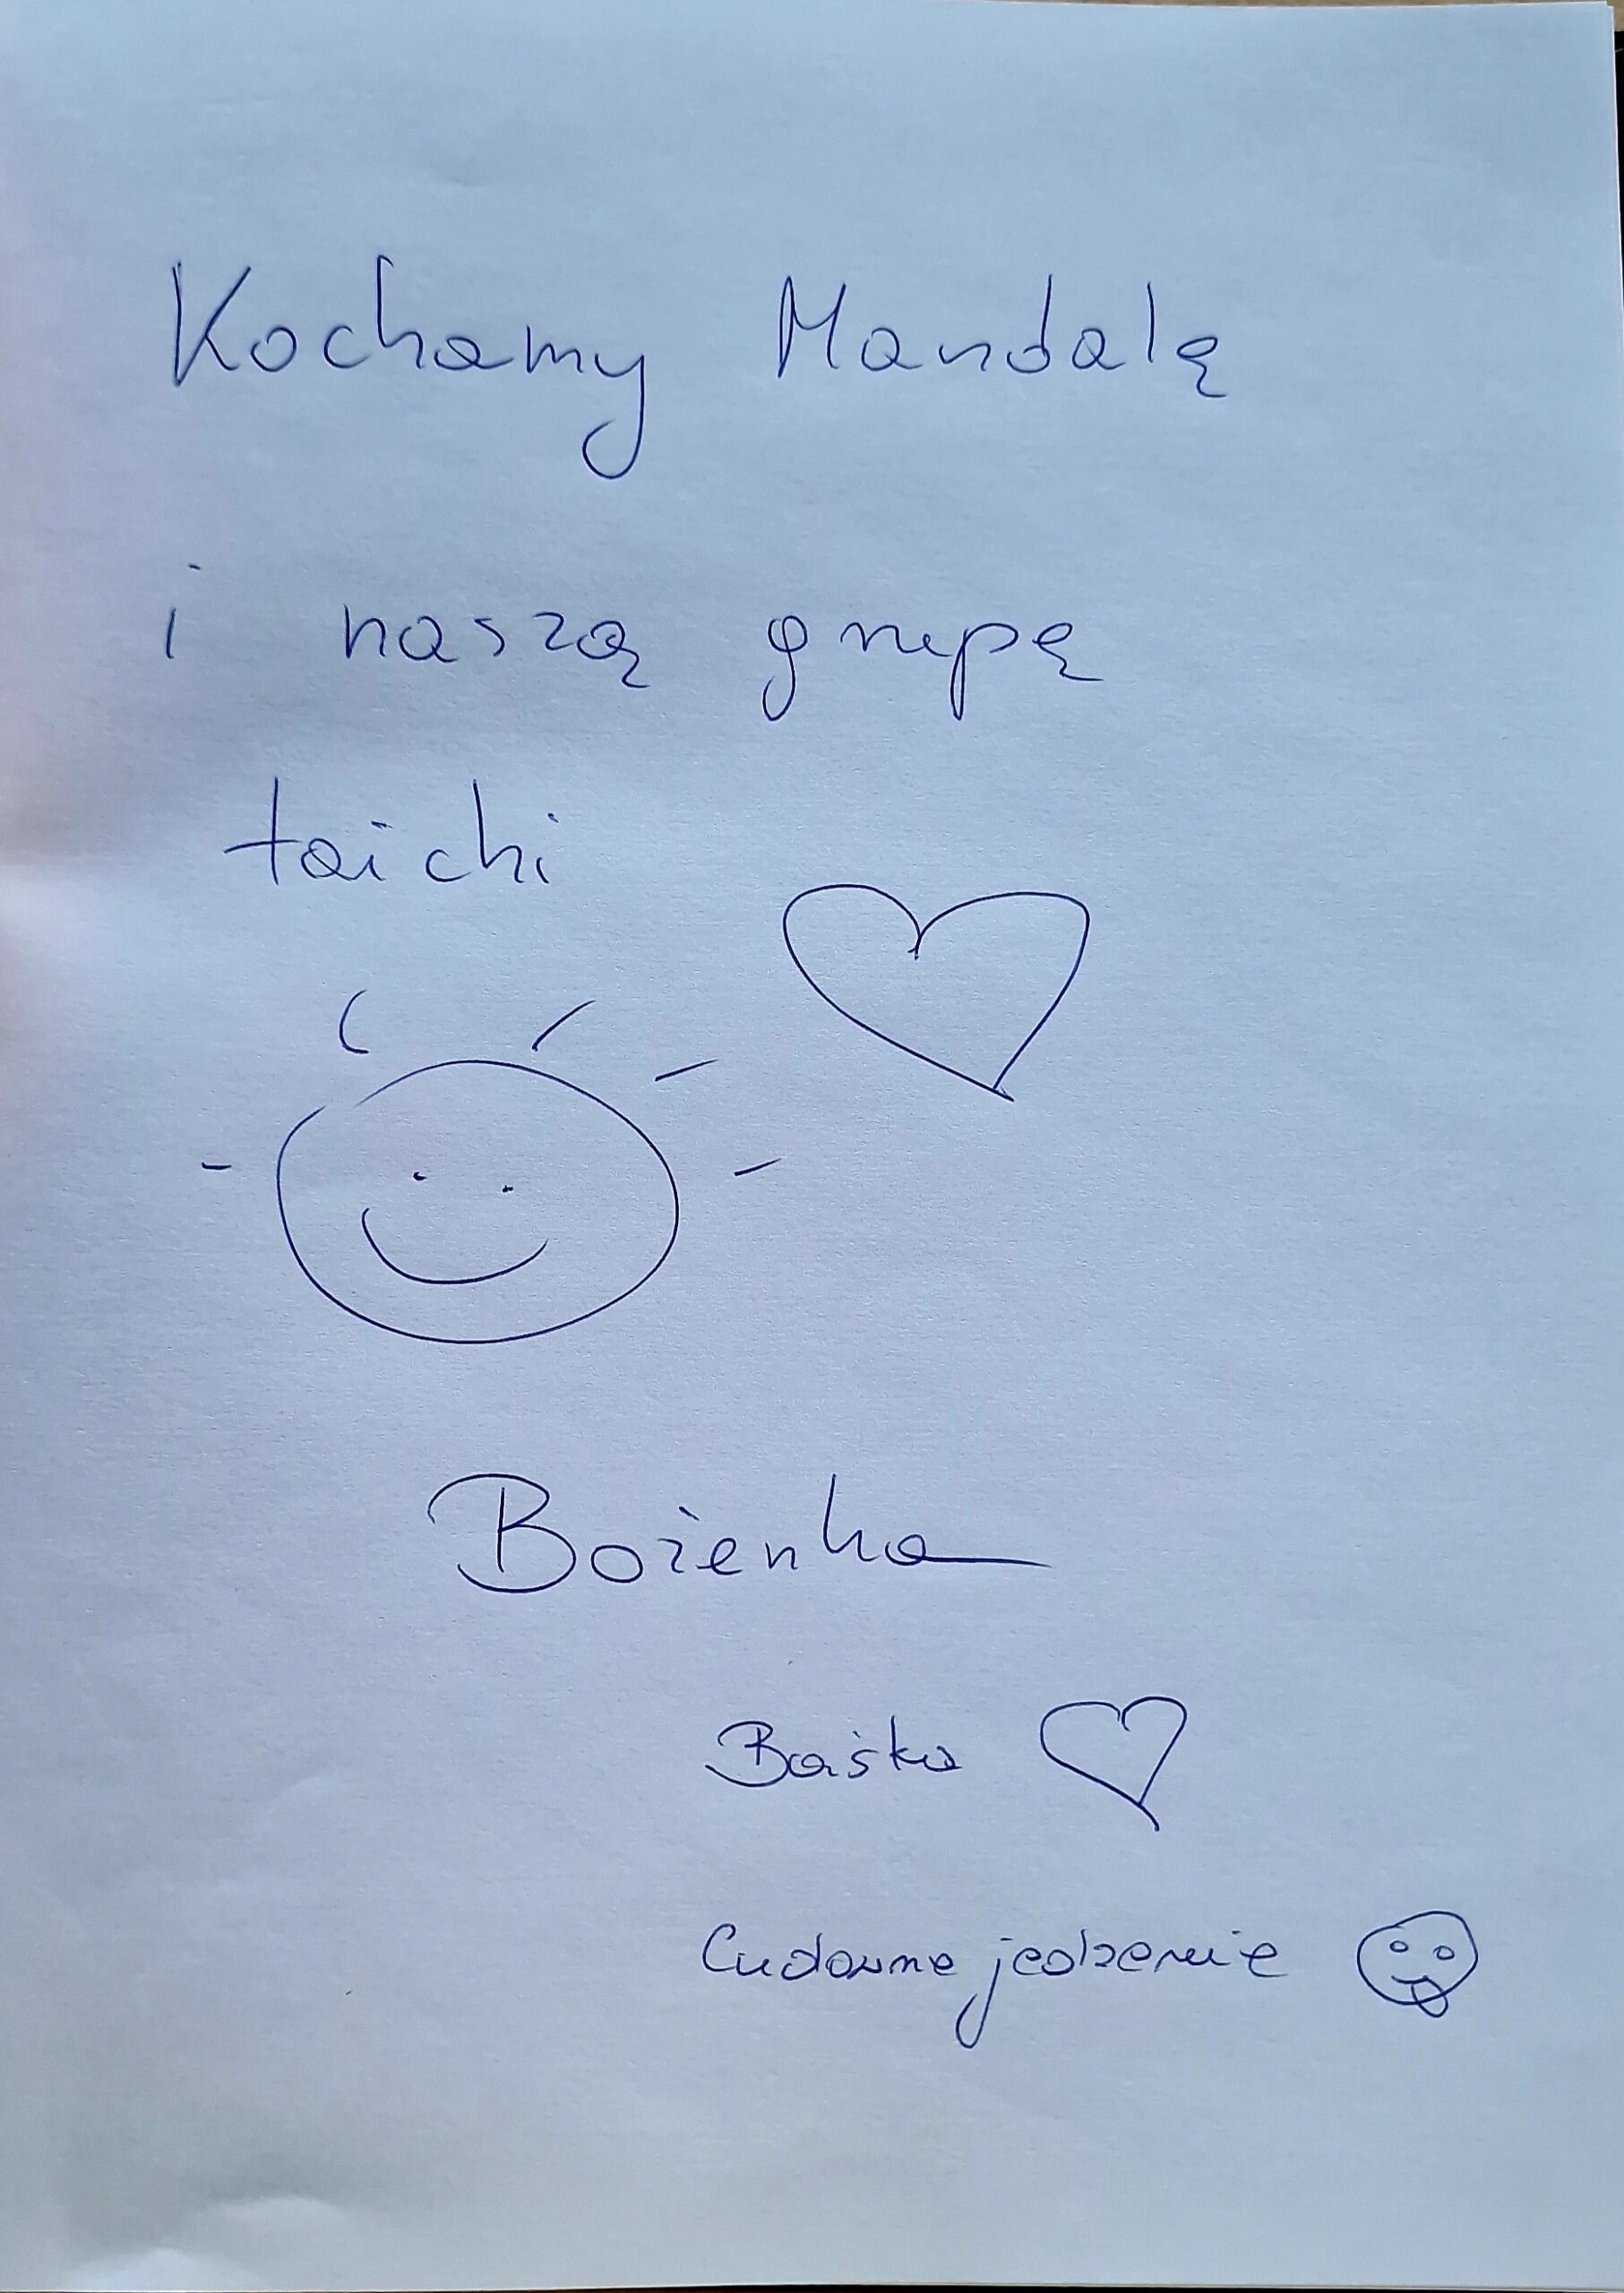 Kochamy Mandalę
i naszą grupę
taichi
Bożenka
Baśka
Cudowne jedzenie